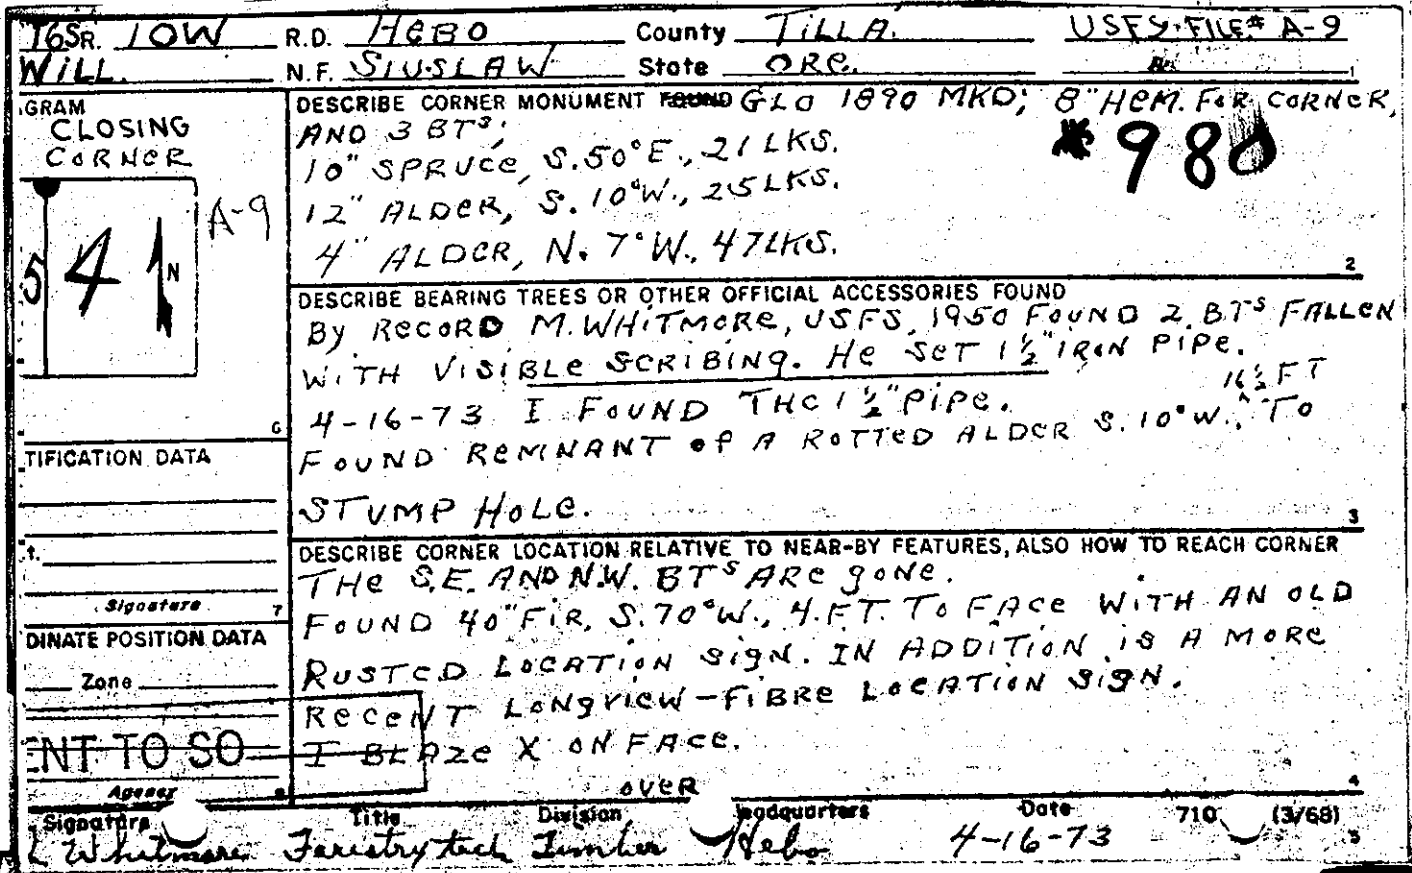 T6S R. 10W R.D. HEBO County TILLA. USFS FILE# A-9
WILL. N.F. SIUSLAW State ORE. 1
GRAM
CLOSING
CORNER
A-9
5 41 N
6
TIFICATION DATA
t.
Signature 7
DINATE POSITION DATA
Zone
ENT TO SO
Agency 8
DESCRIBE CORNER MONUMENT FOUND GLO 1890 MKD; 8" HEM. FOR CORNER,
AND 3 BTS;
*980
10" SPRUCE, S.50°E., 21 LKS.
12" ALDER, S. 10°W., 25 LKS.
4" ALDER, N. 7°W., 47 LKS.
2
DESCRIBE BEARING TREES OR OTHER OFFICIAL ACCESSORIES FOUND
By RECORD M. WHITMORE, USFS, 1950 FOUND 2 BTS FALLEN
WITH VISIBLE SCRIBING. HE SET 1 1/2" IRON PIPE.
4-16-73 I FOUND THE 1 1/2" PIPE.
16 1/2 FT
FOUND REMNANT OF A ROTTED ALDER S. 10°W., ^ TO
STUMP HOLE.
3
DESCRIBE CORNER LOCATION RELATIVE TO NEAR-BY FEATURES, ALSO HOW TO REACH CORNER
THE S.E. AND N.W. BTS ARE GONE.
FOUND 40" FIR, S.70°W., 4.FT. TO FACE WITH AN OLD
RUSTED LOCATION SIGN. IN ADDITION IS A MORE
RECENT LONGVIEW-FIBRE LOCATION SIGN.
I BLAZE X ON FACE.
OVER
4
Signature Title Division Headquarters Date 710 (3/68)
L Whitmore Forestry tech Timber Hebo 4-16-73 5